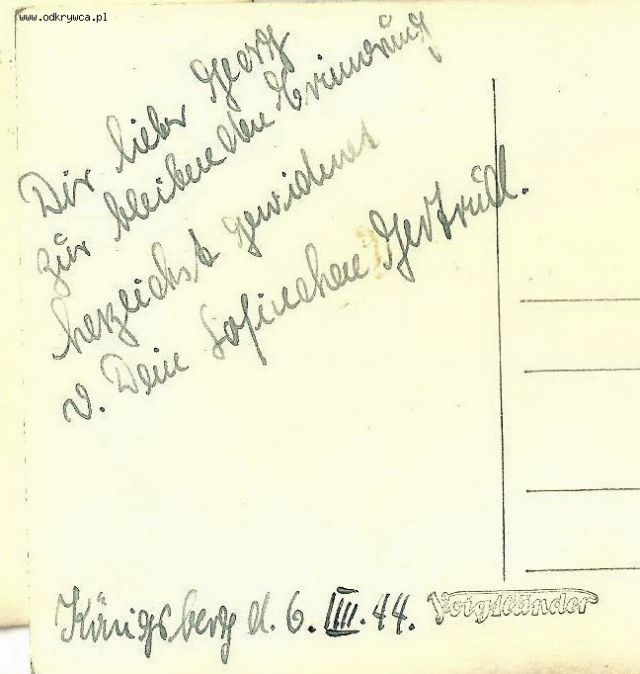 www.odkrywca.pl
Dir lieber Georg
zur bleibenden Erinnerung
herzlichst gewidmet
v. Dein Gertrud.
Königsberg d. 6. IIII. 44.
Voigtländer